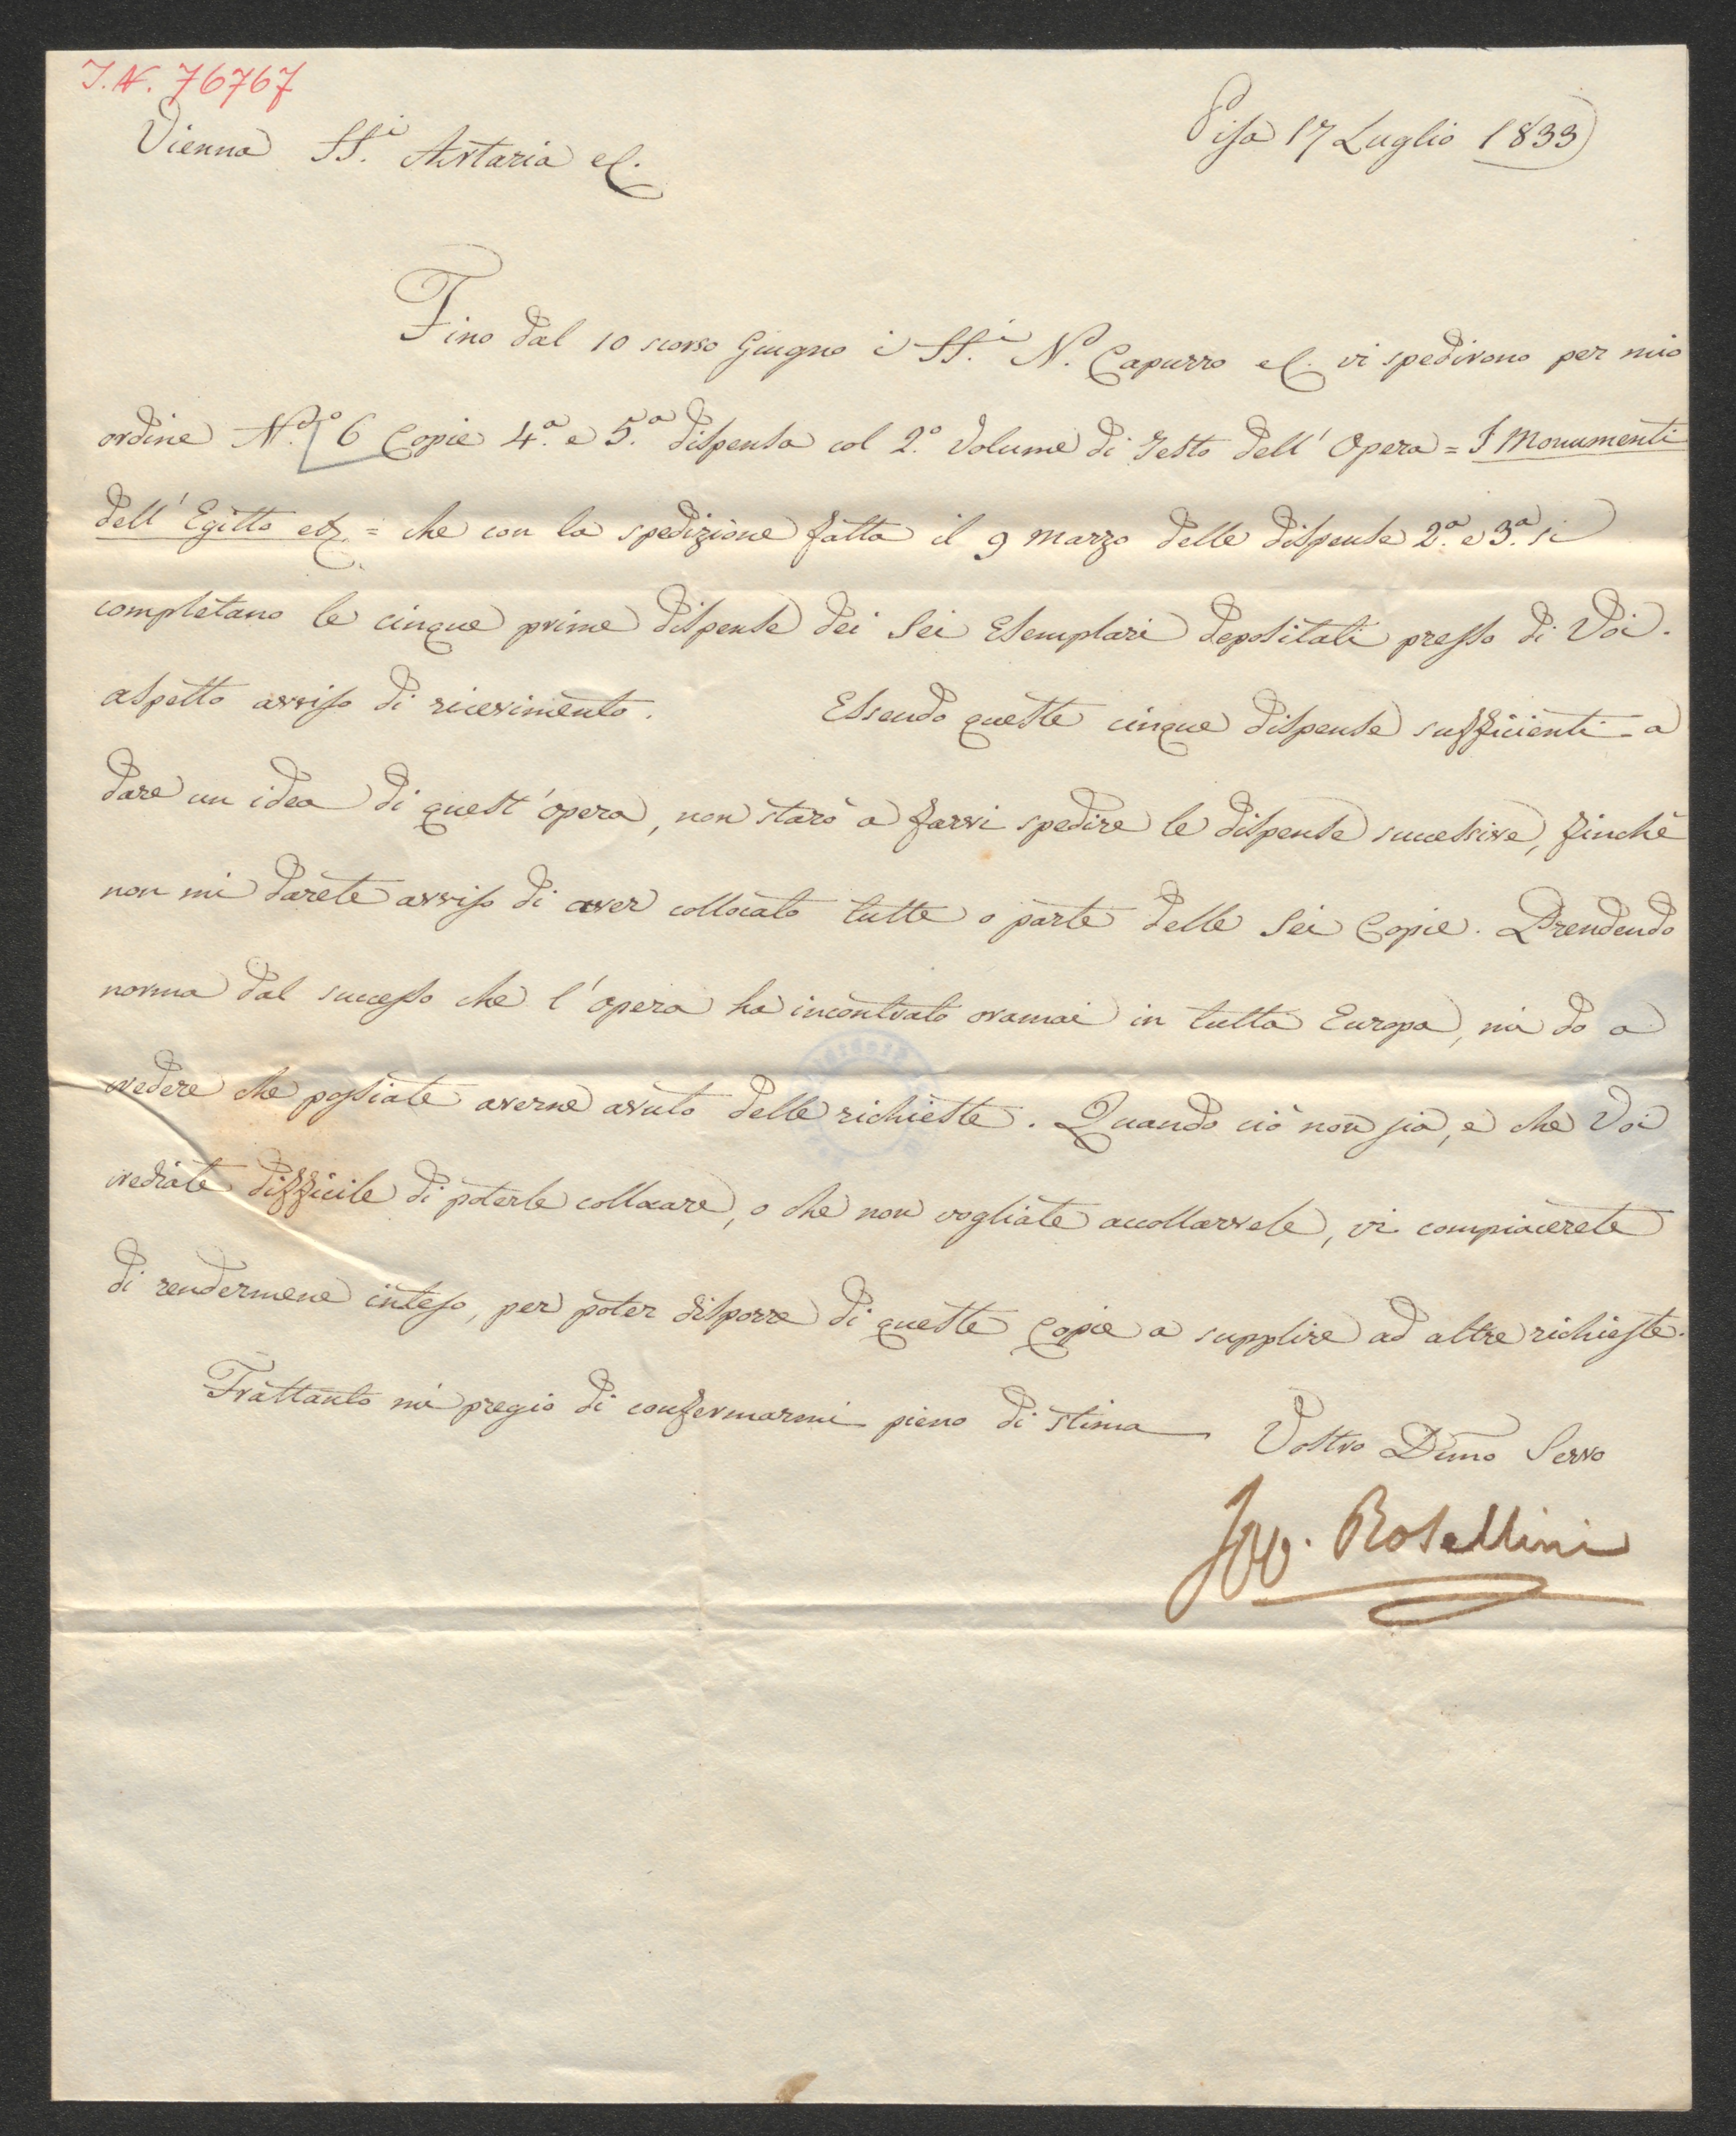 I.N. 76767
Vienna SS.i Artaria e C.
Pisa 17 Luglio 1833
Fino dal 10 scorso Giugno i SS.i N.o Capurro e C. vi spedirono per mio
ordine N.o 6 Copie 4.a e 5.a dispensa col 2.o Volume di Testo dell' Opera = I Monumenti
dell' Egitto etc. = che con la spedizione fatta il 9 Marzo delle dispense 2.a e 3.a si
completano le cinque prime dispense dei Sei Esemplari depositati presso di Voi.
aspetto avviso di ricevimento. Essendo queste cinque dispense sufficienti a
dare un idea di quest' opera, non starò a farvi spedire le dispense successive, finchè
non mi darete avviso di aver collocato tutte o parte delle Sei Copie. Prendendo
norma dal successo che l' opera ha incontrato oramai in tutta Europa, mi do a
credere che possiate averne avuto delle richieste. Quando ciò non sia, e che Voi
crediate difficile di poterle collocare, o che non vogliate accollarvele, vi compiacerete
di rendermene inteso, per poter disporre di queste Copie a supplire ad altre richieste.
Frattanto mi pregio di confermarmi pieno di stima
Vostro Dmo Servo
Ipp. Rosellini